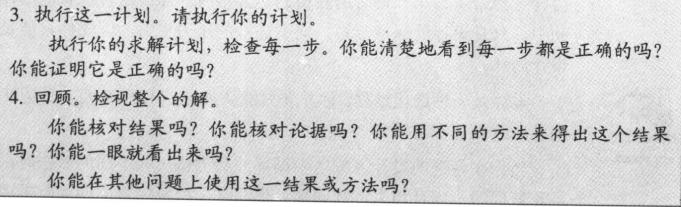 3. 执行这一计划。请执行你的计划。
执行你的求解计划，检查每一步。你能清楚地看到每一步都是正确的吗？
你能证明它是正确的吗？
4. 回顾。检视整个的解。
你能核对结果吗？你能核对论据吗？你能用不同的方法来得出这个结果
吗？你能一眼就看出来吗？
你能在其他问题上使用这一结果或方法吗？